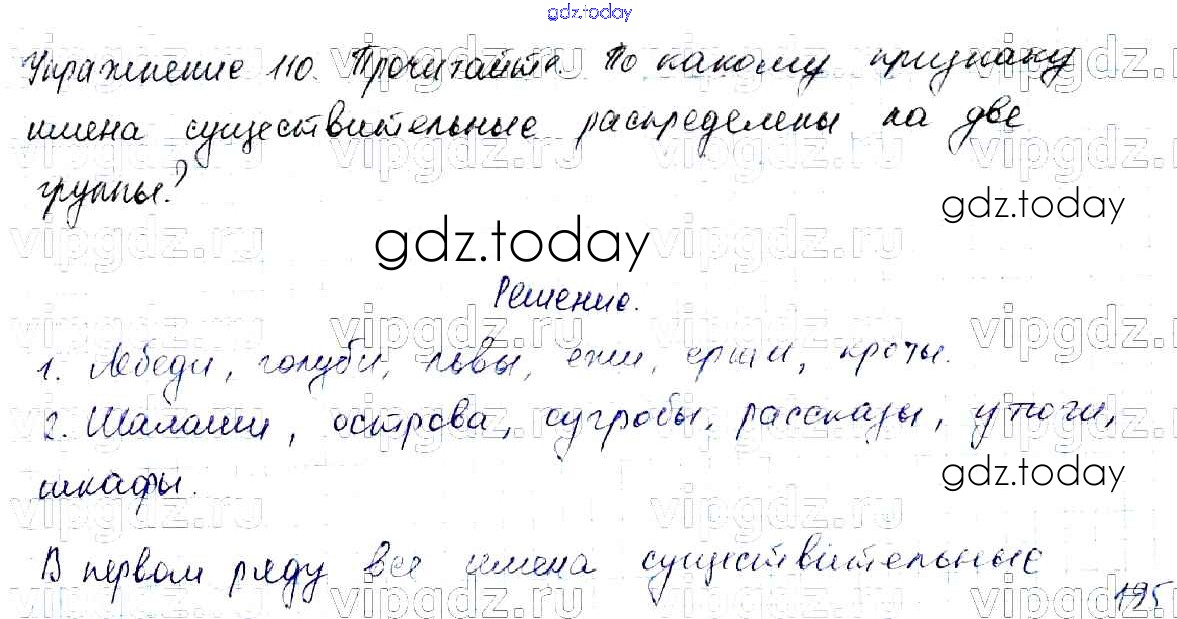 gdz.today
Упражнение 110. Прочитайте. По какому признаку
имена существительные распределены на две
группы?
gdz.today
gdz.today
Решение.
1. Лебеди, голуби, львы, ежи, ерши, кроты.
2. Шалаши, острова, сугробы, рассказы, утюги,
шкафы.
gdz.today
В первом ряду все имена существительные
195